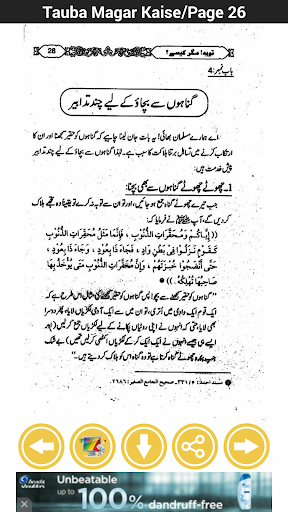 Tauba Magar Kaise/Page 26
توبہ! مگر کیسے؟
28
باب نمبر: 4
گناہوں سے بچاؤ کے لیے چند تدابیر
اے ہمارے مسلمان بھائی! یہ بات جان لینا چاہیے کہ گناہوں کو حقیر سمجھنا اور ان کا
ارتکاب کرنے میں تساہل برتنا ہلاکت کا سبب ہے۔ لہٰذا گناہوں سے بچاؤ کے لیے چند تدابیر
پیش خدمت ہیں:
1۔ چھوٹے چھوٹے گناہوں سے بھی بچنا:
جب میرے چھوٹے گناہ جمع ہو جائیں، اور تو اس سے توبہ نہ کرے تو یقیناً وہ تجھے ہلاک
کر دیں گے، آپ ﷺ نے فرمایا کہ:
(( إِيَّاكُمْ وَمُحَقَّرَاتِ الذُّنُوْبِ ، فَإِنَّمَا مَثَلُ مُحَقَّرَاتِ الذُّنُوْبِ
كَقَوْمٍ نَزَلُوْا فِي بَطْنِ وَادٍ ، فَجَاءَ ذَا بِعُوْدٍ ، وَجَاءَ ذَا بِعُوْدٍ ،
حَتَّى أَنْضَجُوْا خُبْزَتَهُمْ ، وَإِنَّ مُحَقَّرَاتِ الذُّنُوْبِ مَتَى يُؤْخَذْ بِهَا
صَاحِبُهَا تُهْلِكْهُ ۔ ))
"گناہوں کو حقیر سمجھنے سے بچو! پس گناہوں کو حقیر سمجھنے کی مثال اس طرح ہے کہ
ایک قوم ایک وادی میں اتری، تو ان میں سے ایک آدمی لکڑیاں لایا، پھر دوسرا
بھی لایا، حتی کہ انہوں نے اپنی روٹیاں پکانے کے لیے لکڑیاں جمع کر لیں (اور
ایسے ہی جیسے انہوں نے ایک ایک کر کے لکڑیاں اکٹھی کر لیں تھیں) بے شک
جب بندہ چھوٹے گناہ کرتا ہے تو وہ گناہ اس کو ہلاک کر دیتے ہیں۔"
مسند احمد: ٣٣١/٥، صحیح الجامع الصغیر: ٢٦٨٦۔
head & shoulders
Unbeatable
up to 100% dandruff-free